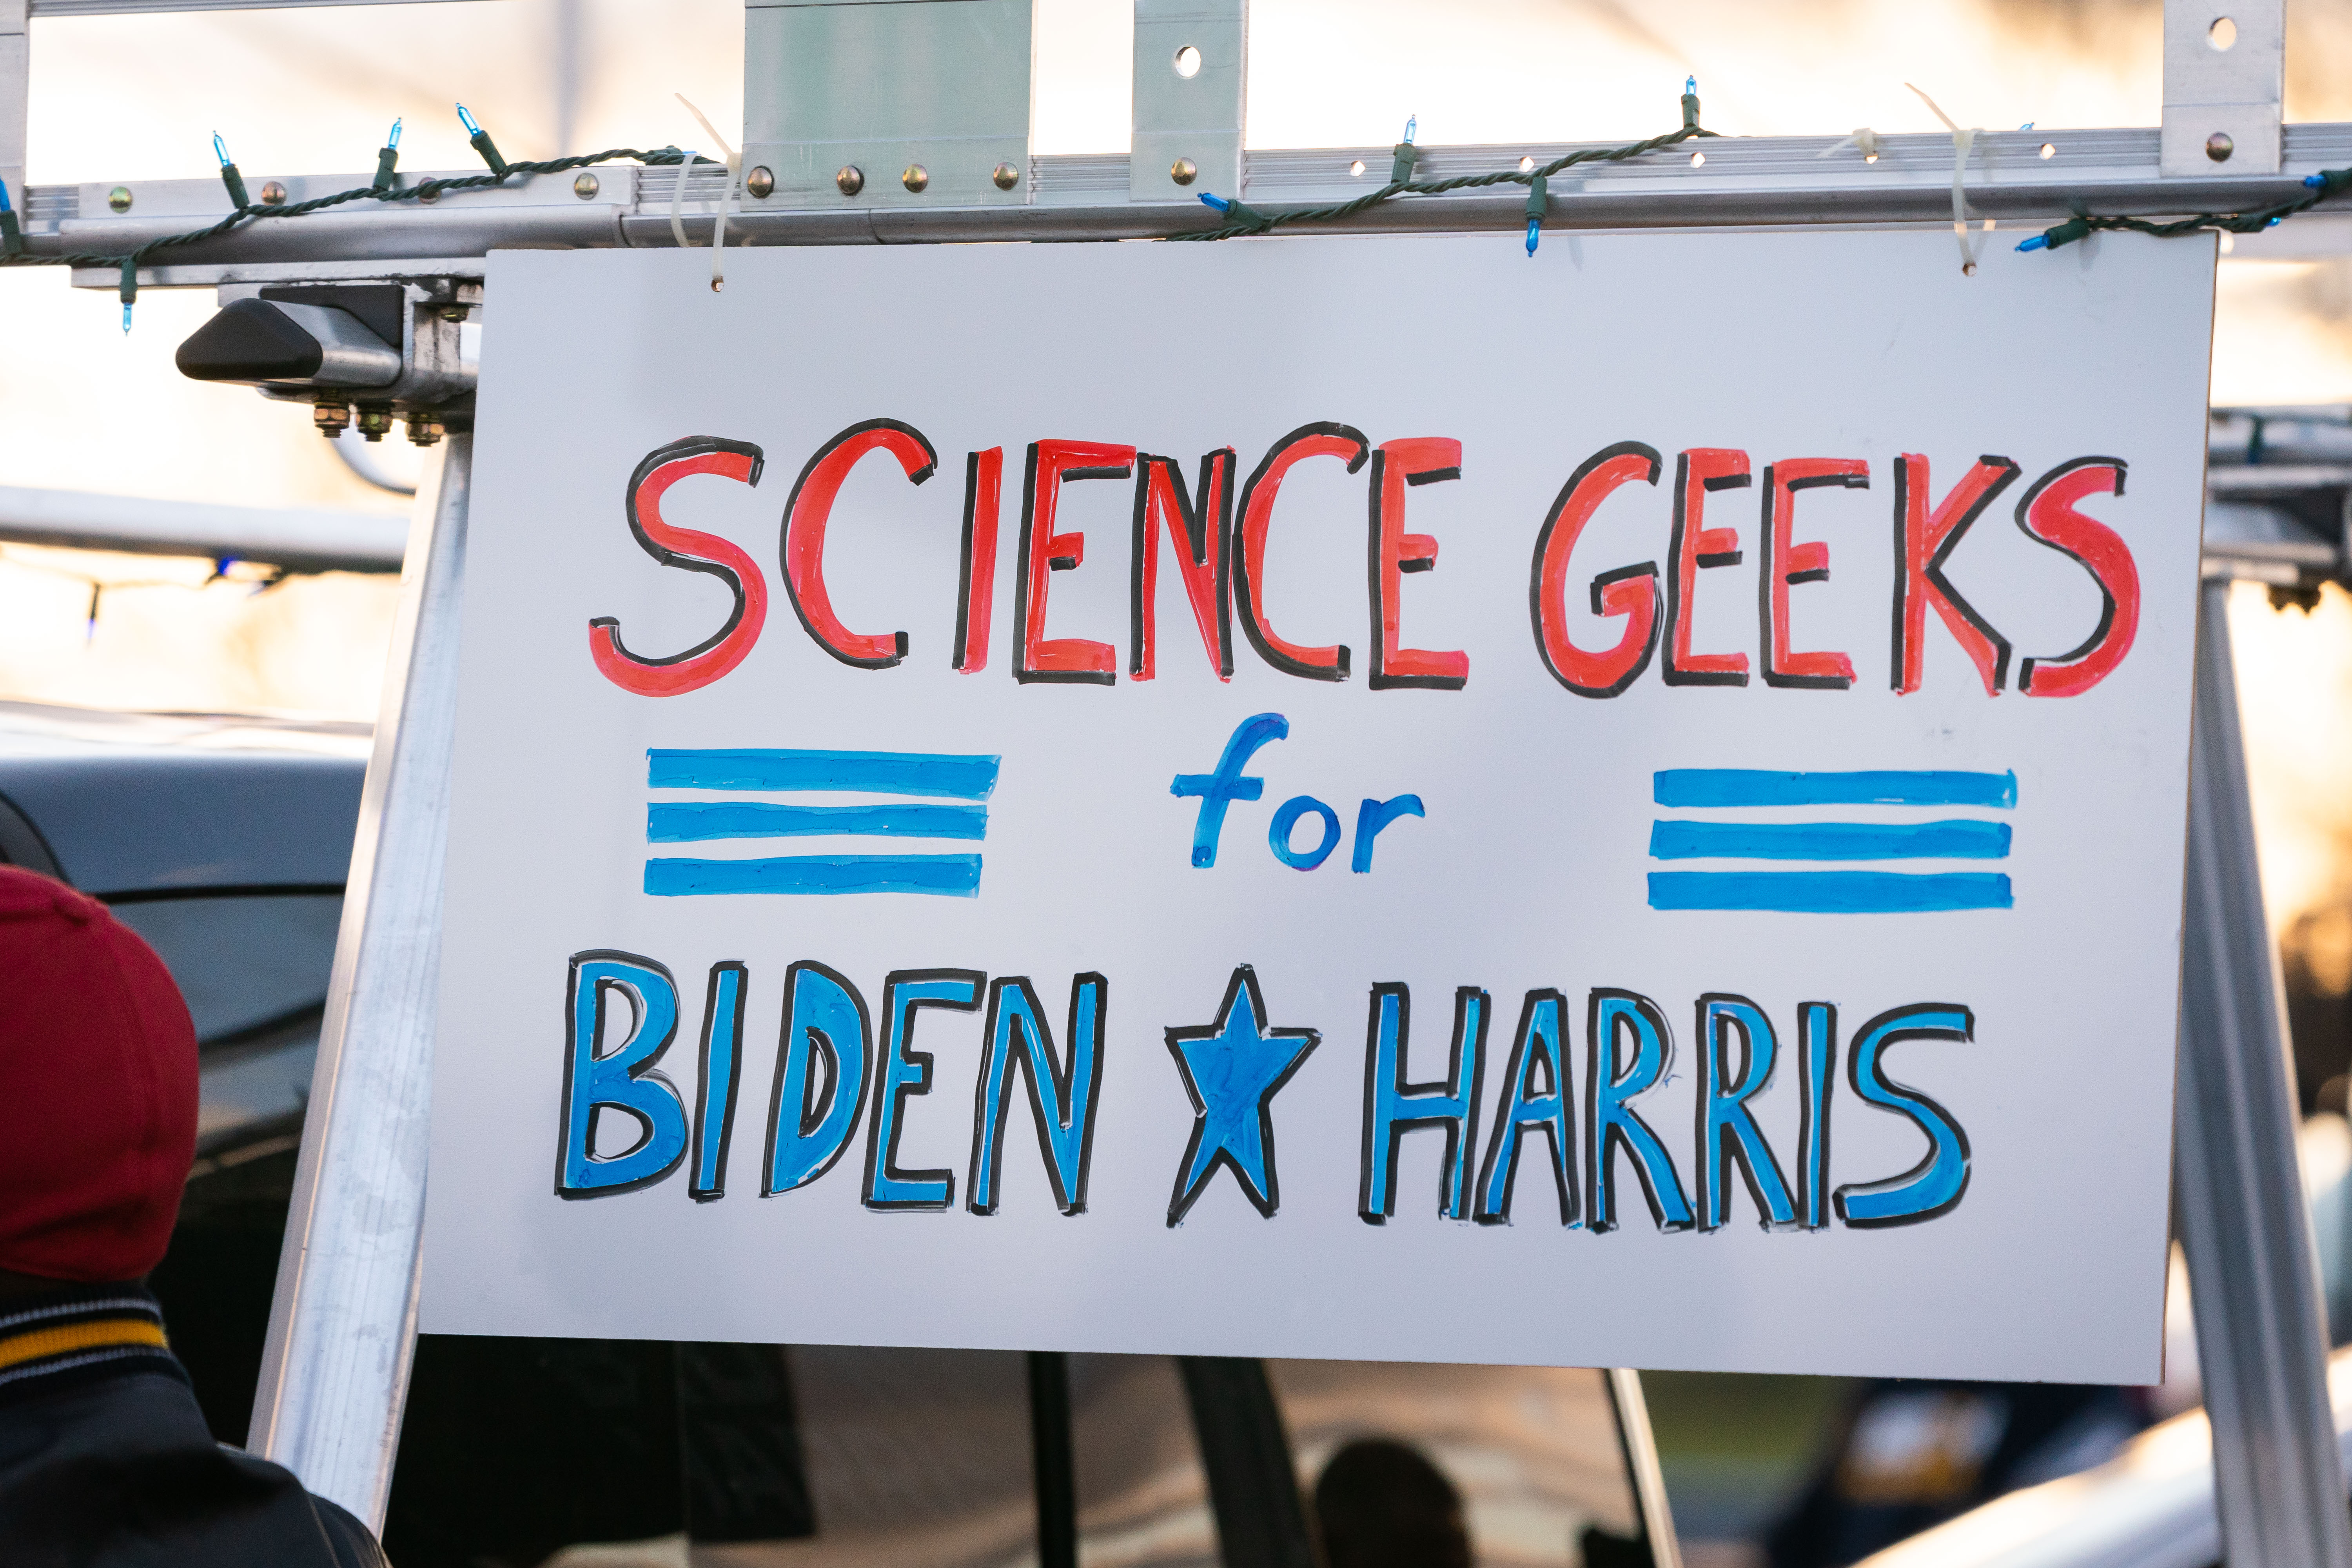 SCIENCE GEEKS
for
BIDEN ★ HARRIS